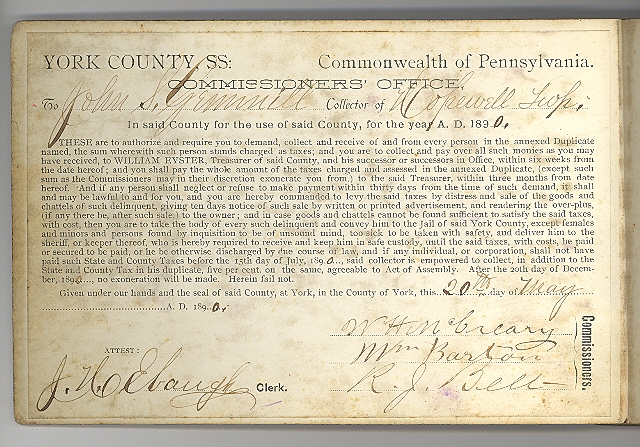 YORK COUNTY, SS: Commonwealth of Pennsylvania.
COMMISSIONERS' OFFICE,
To John S. Grimmell Collector of Hopewell Twp.
In said County for the use of said County, for the year A. D. 1890.
THESE are to authorize and require you to demand, collect and receive of and from every person in the annexed Duplicate
named, the sum wherewith such person stands charged as taxes; and you are to collect and pay over all such monies as you may
have received, to WILLIAM EYSTER, Treasurer of said County, and his successor or successors in Office, within six weeks from
the date hereof; and you shall pay the whole amount of the taxes charged and assessed in the annexed Duplicate, (except such
sum as the Commissioners may in their discretion exonerate you from,) to the said Treasurer, within three months from date
hereof. And if any person shall neglect or refuse to make payment within thirty days from the time of such demand, it shall
and may be lawful to and for you, and you are hereby commanded to levy the said taxes by distress and sale of the goods and
chattels of such delinquent, giving ten days notice of such sale by written or printed advertisement, and rendering the over-plus,
(if any there be, after such sale,) to the owner; and in case goods and chattels cannot be found sufficient to satisfy the said taxes,
with cost, then you are to take the body of every such delinquent and convey him to the Jail of said York County, except females
and minors and persons found by inquisition to be of unsound mind, too sick to be taken with safety, and deliver him to the
sheriff, or keeper thereof, who is hereby required to receive and keep him in safe custody, until the said taxes, with costs, be paid
or secured to be paid, or he be otherwise discharged by due course of law, and if any individual, or corporation, shall not have
paid such State and County Taxes before the 15th day of July, 1890..., said collector is empowered to collect, in addition to the
State and County Tax in his duplicate, five per cent. on the same, agreeable to Act of Assembly. After the 20th day of Decem-
ber, 1890..., no exoneration will be made. Herein fail not.
Given under our hands and the seal of said County, at York, in the County of York, this 20th day of May
A. D. 1890.
W H McCreary
Wm Barton
R. J. Belt
Commissioners.
ATTEST:
J. H. Ebaugh Clerk.